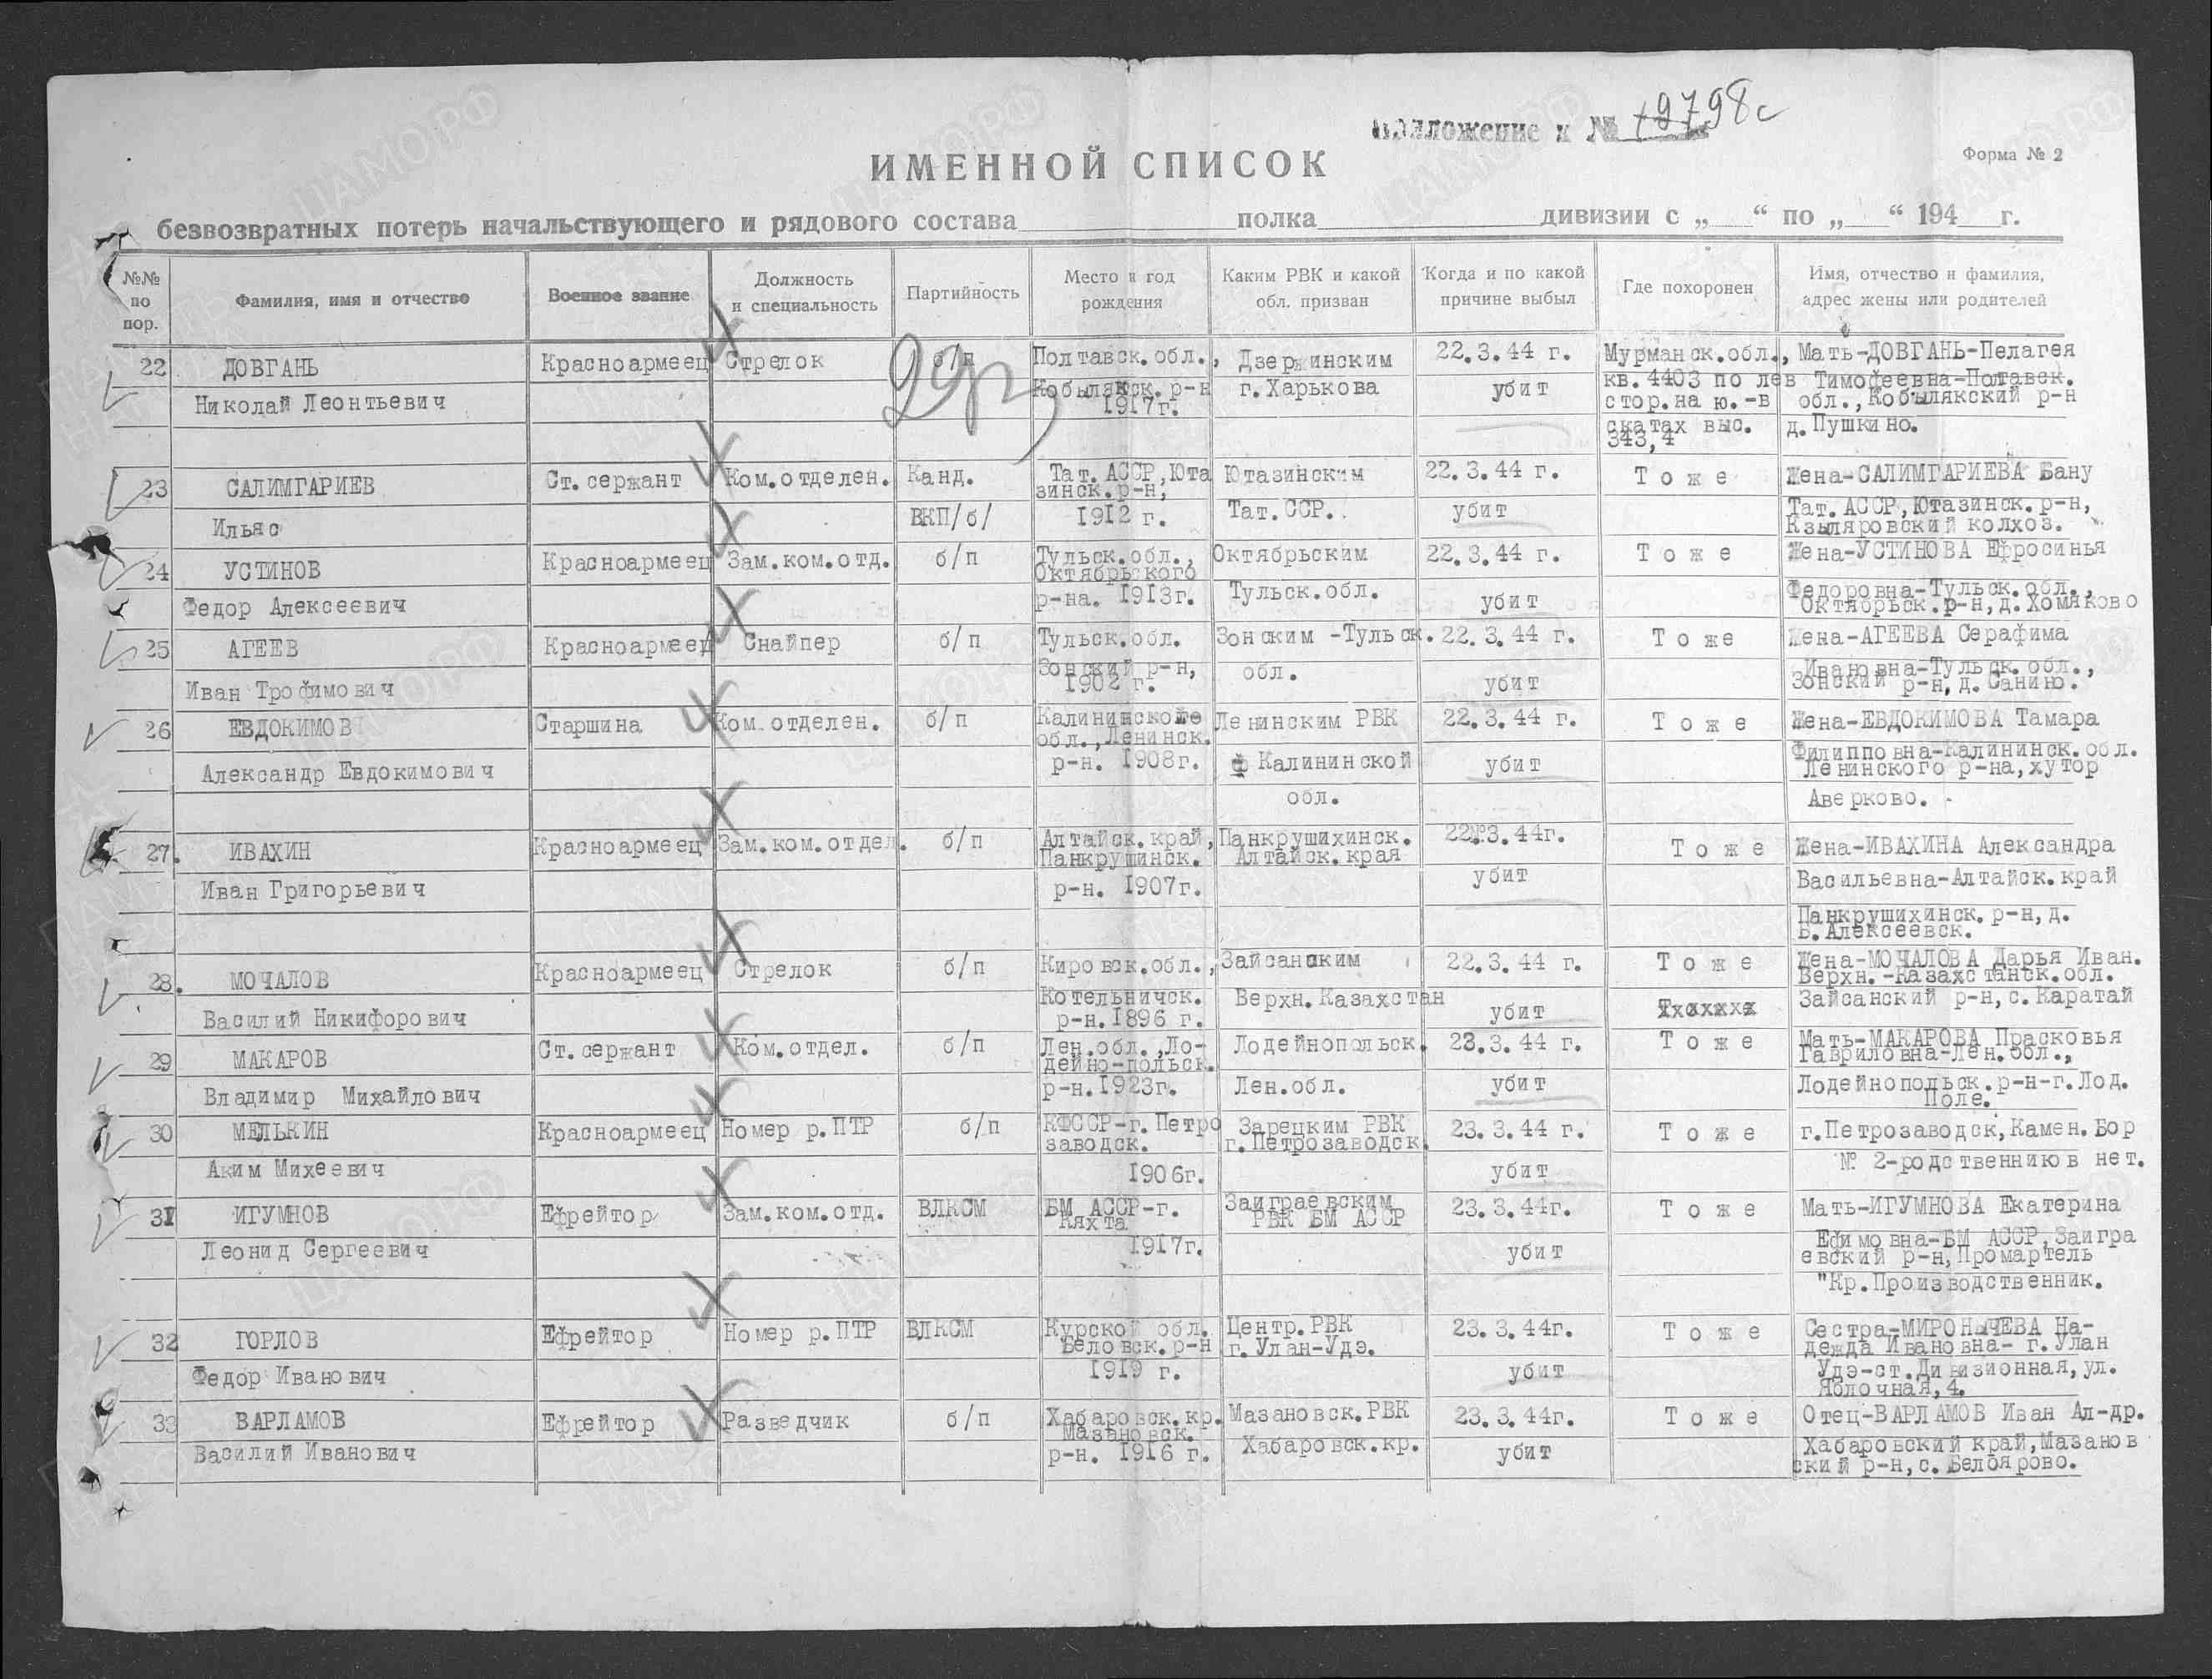 Приложение к № 19798с
ИМЕННОЙ СПИСОК
Форма № 2
безвозвратных потерь начальствующего и рядового состава полка дивизии с „ “ по „ “ 194 г.
№№ по пор.
Фамилия, имя и отчество
Военное звание
Должность и специальность
Партийность
Место и год рождения
Каким РВК и какой обл. призван
Когда и по какой причине выбыл
Где похоронен
Имя, отчество и фамилия, адрес жены или родителей
22 ДОВГАНЬ Красноармеец Стрелок б/п Полтавск.обл., Дзержинским 22.3.44 г. Мурманск.обл., Мать-ДОВГАНЬ-Пелагея
Николай Леонтьевич Кобылякск. р-н г.Харькова убит кв.4403 по лев Тимофеевна-Полтавск.
1917г. стор.на ю.-в обл.,Кобылякский р-н
скатах выс. д.Пушкино.
343,4
23 САЛИМГАРИЕВ Ст.сержант Ком.отделен. Канд. Тат.АССР,Юта Ютазинским 22.3.44 г. Т о ж е Жена-САЛИМГАРИЕВА Бану
зинск.р-н,
Ильяс ВКП/б/ 1912 г. Тат.ССР. убит Тат.АССР,Ютазинск.р-н,
Кзыляровский колхоз.
24 УСТИНОВ Красноармеец Зам.ком.отд. б/п Тульск.обл., Октябрьским 22.3.44 г. Т о ж е Жена-УСТИНОВА Ефросинья
Октябрьского
Федор Алексеевич р-на. 1913г. Тульск.обл. убит Федоровна-Тульск.обл.,
Октябрьск.р-н,д.Хомяково
25 АГЕЕВ Красноармеец Снайпер б/п Тульск.обл. Зонским -Тульск. 22.3.44 г. Т о ж е Жена-АГЕЕВА Серафима
Иван Трофимович Зонский р-н, обл. убит Ивановна-Тульск.обл.,
1902 г. Зонский р-н,д.Санию.
26 ЕВДОКИМОВ Старшина Ком.отделен. б/п Калининской Ленинским РВК 22.3.44 г. Т о ж е Жена-ЕВДОКИМОВА Тамара
обл.,Ленинск.
Александр Евдокимович р-н. 1908г. Калининской убит Филипповна-Калининск.обл.
Ленинского р-на,хутор
обл. Аверково.
27. ИВАХИН Красноармеец Зам.ком.отдел. б/п Алтайск.край, Панкрушихинск. 22.3.44г. Т о ж е Жена-ИВАХИНА Александра
Панкрушинск. Алтайск.края
Иван Григорьевич р-н. 1907г. убит Васильевна-Алтайск.край
Панкрушихинск.р-н,д.
Б.Алексеевск.
28. МОЧАЛОВ Красноармеец Стрелок б/п Кировск.обл., Зайсанским 22.3.44 г. Т о ж е Жена-МОЧАЛОВА Дарья Иван.
Верхн.-Казахстанск.обл.
Василий Никифорович Котельничск. Верхн.Казахстан убит Зайсанский р-н,с.Каратай
р-н.1896 г.
29 МАКАРОВ Ст.сержант Ком.отдел. б/п Лен.обл.,Ло- Лодейнопольск. 23.3.44 г. Т о ж е Мать-МАКАРОВА Прасковья
дейно-польск. Гавриловна-Лен.обл.,
Владимир Михайлович р-н.1923г. Лен.обл. убит Лодейнопольск.р-н-г.Лод.
Поле.
30 МЕЛЬКИН Красноармеец Номер р.ПТР б/п КФССР-г.Петро Зарецким РВК 23.3.44 г. Т о ж е г.Петрозаводск,Камен.Бор
заводск. г.Петрозаводск.
Аким Михеевич 1906г. убит № 2-родственнию в нет.
31 ИГУМНОВ Ефрейтор Зам.ком.отд. ВЛКСМ БМ АССР-г. Заиграевским 23.3.44г. Т о ж е Мать-ИГУМНОВА Екатерина
Кяхта РВК БМ АССР
Леонид Сергеевич 1917г. убит Ефимовна-БМ АССР,Заигра
евский р-н,Промартель
"Кр.Производственник.
32 ГОРЛОВ Ефрейтор Номер р.ПТР ВЛКСМ Курской обл. Центр.РВК 23.3.44г. Т о ж е Сестра-МИРОНЫЧЕВА На-
Беловск.р-н г.Улан-Удэ. дежда Ивановна- г.Улан
Федор Иванович 1919 г. убит Удэ-ст.Дивизионная,ул.
Яблочная,4.
33 ВАРЛАМОВ Ефрейтор Разведчик б/п Хабаровск.кр. Мазановск.РВК 23.3.44г. Т о ж е Отец-ВАРЛАМОВ Иван Ал-др.
Мазановск.
Василий Иванович р-н. 1916 г. Хабаровск.кр. убит Хабаровский край,Мазанов
ский р-н,с.Белоярово.